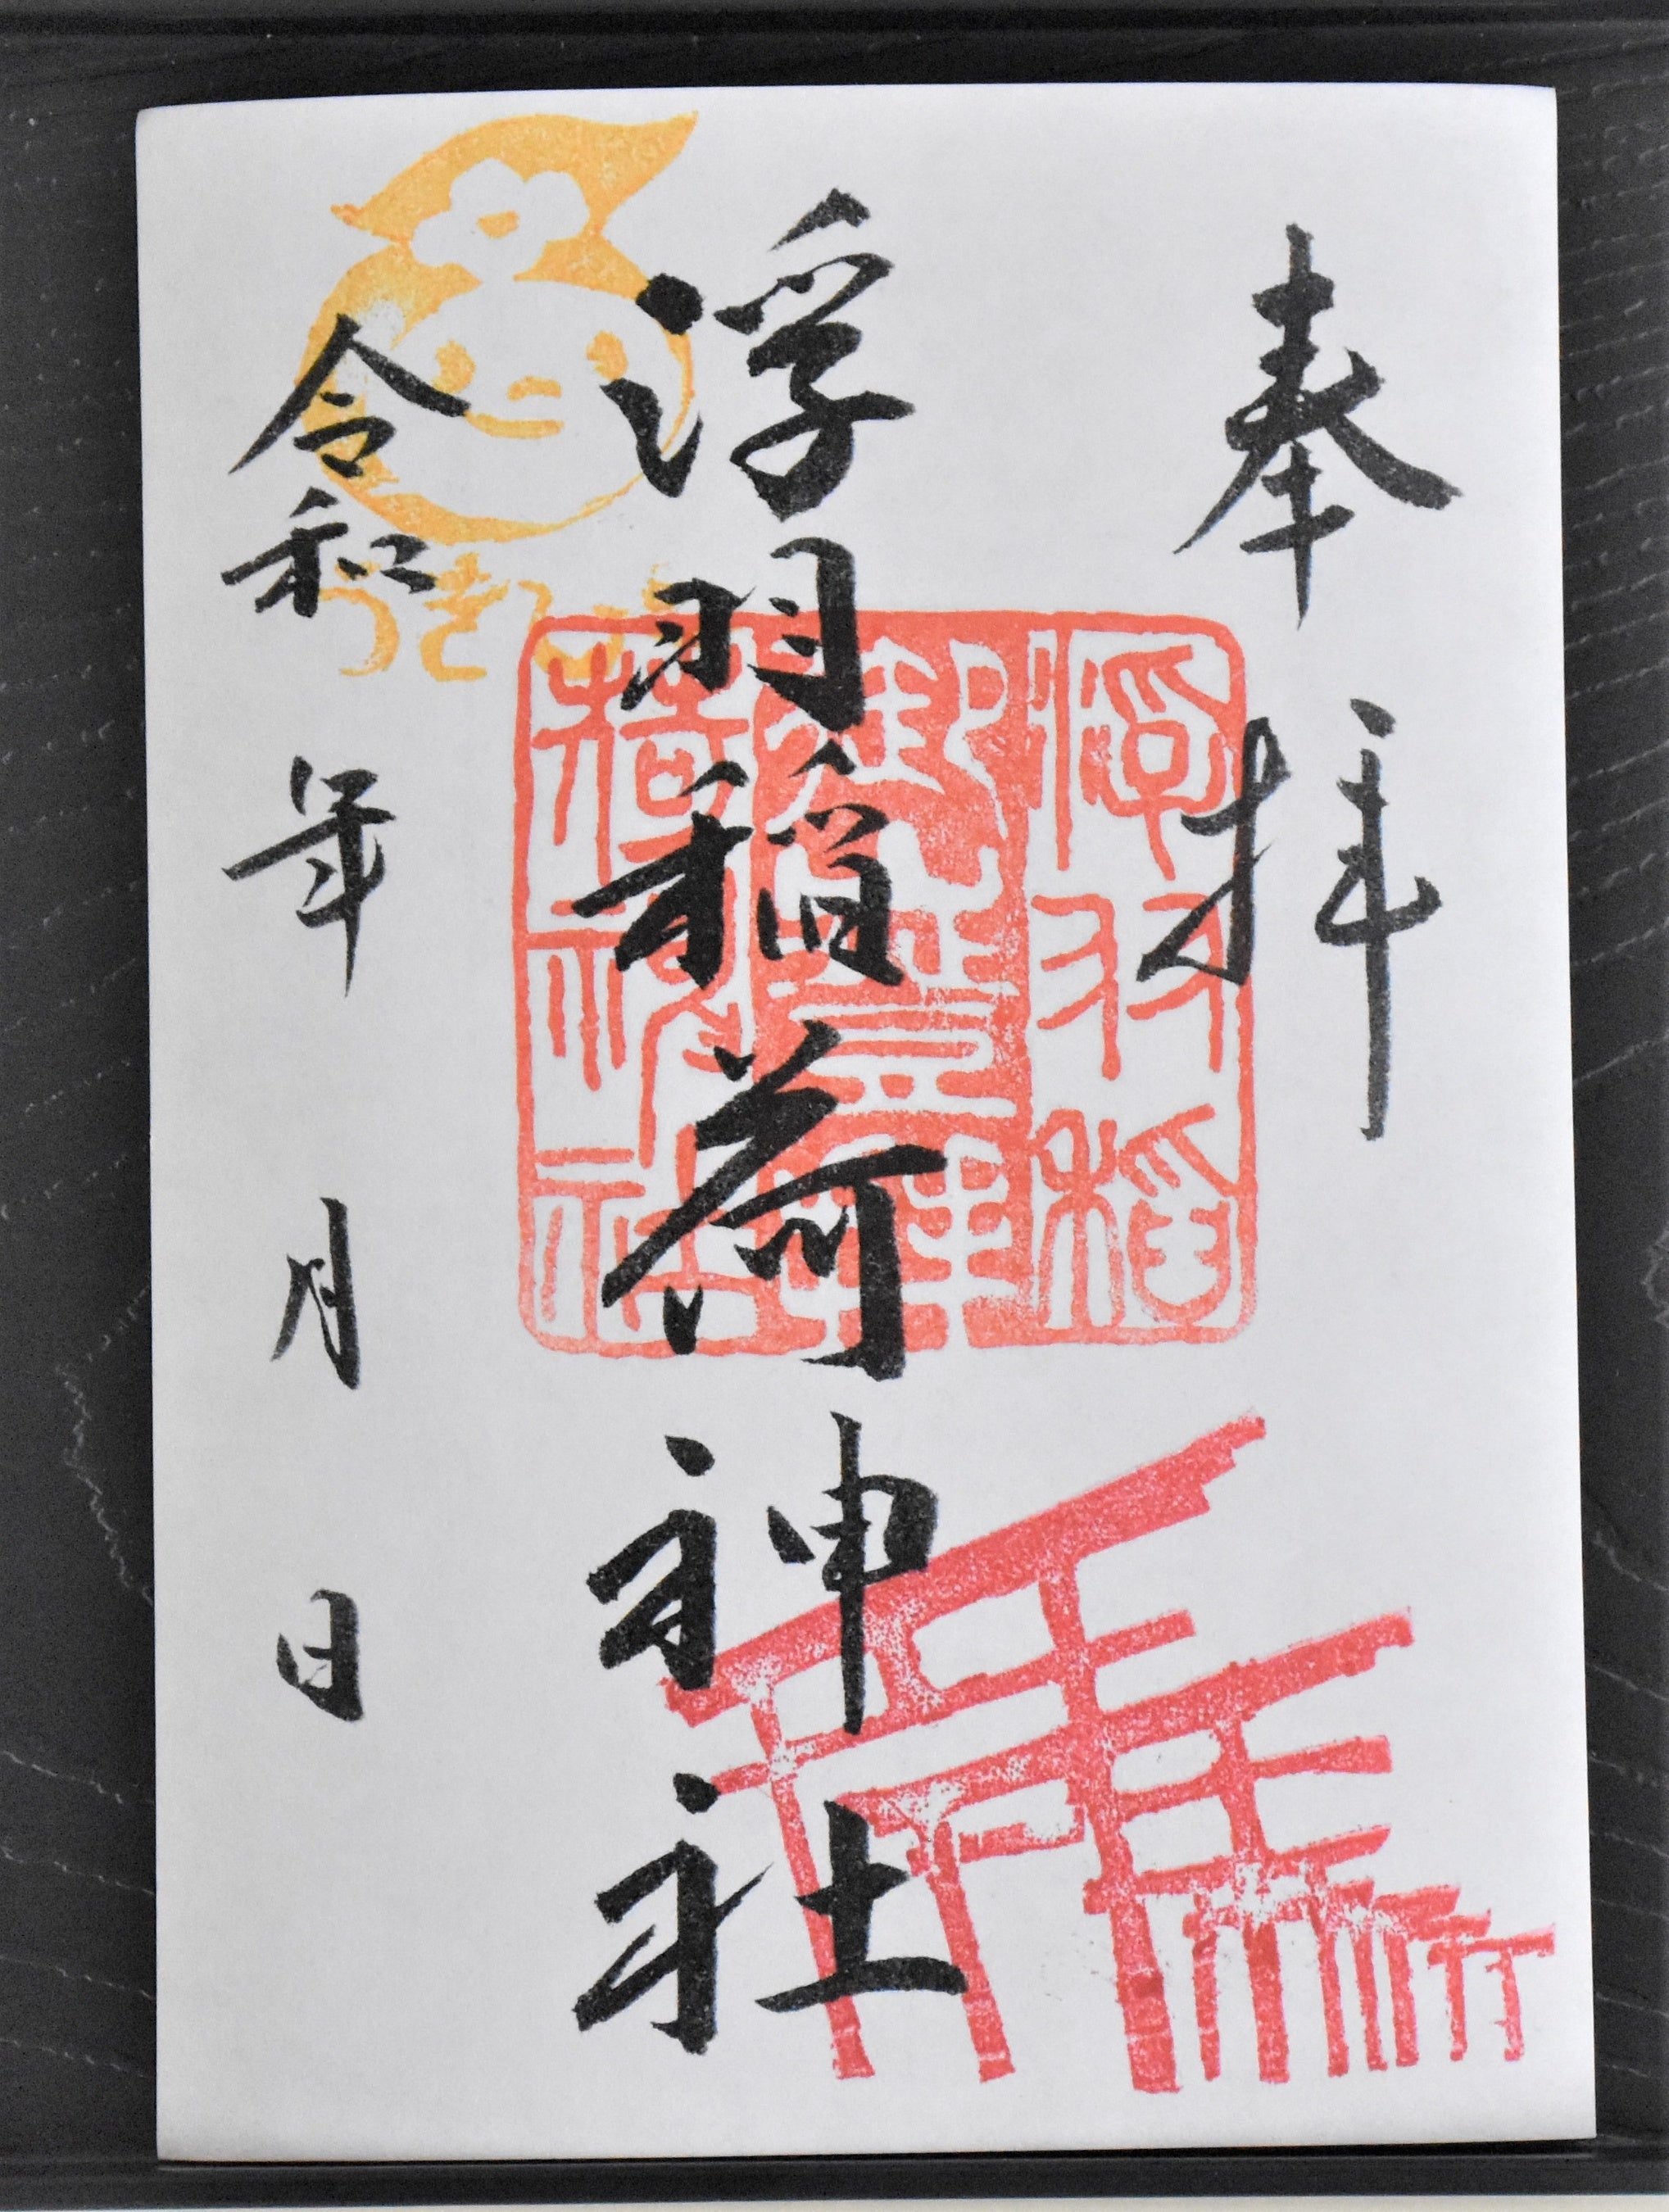 奉拝
浮羽稲荷神社
令和 年 月 日
浮羽稲
荷神社